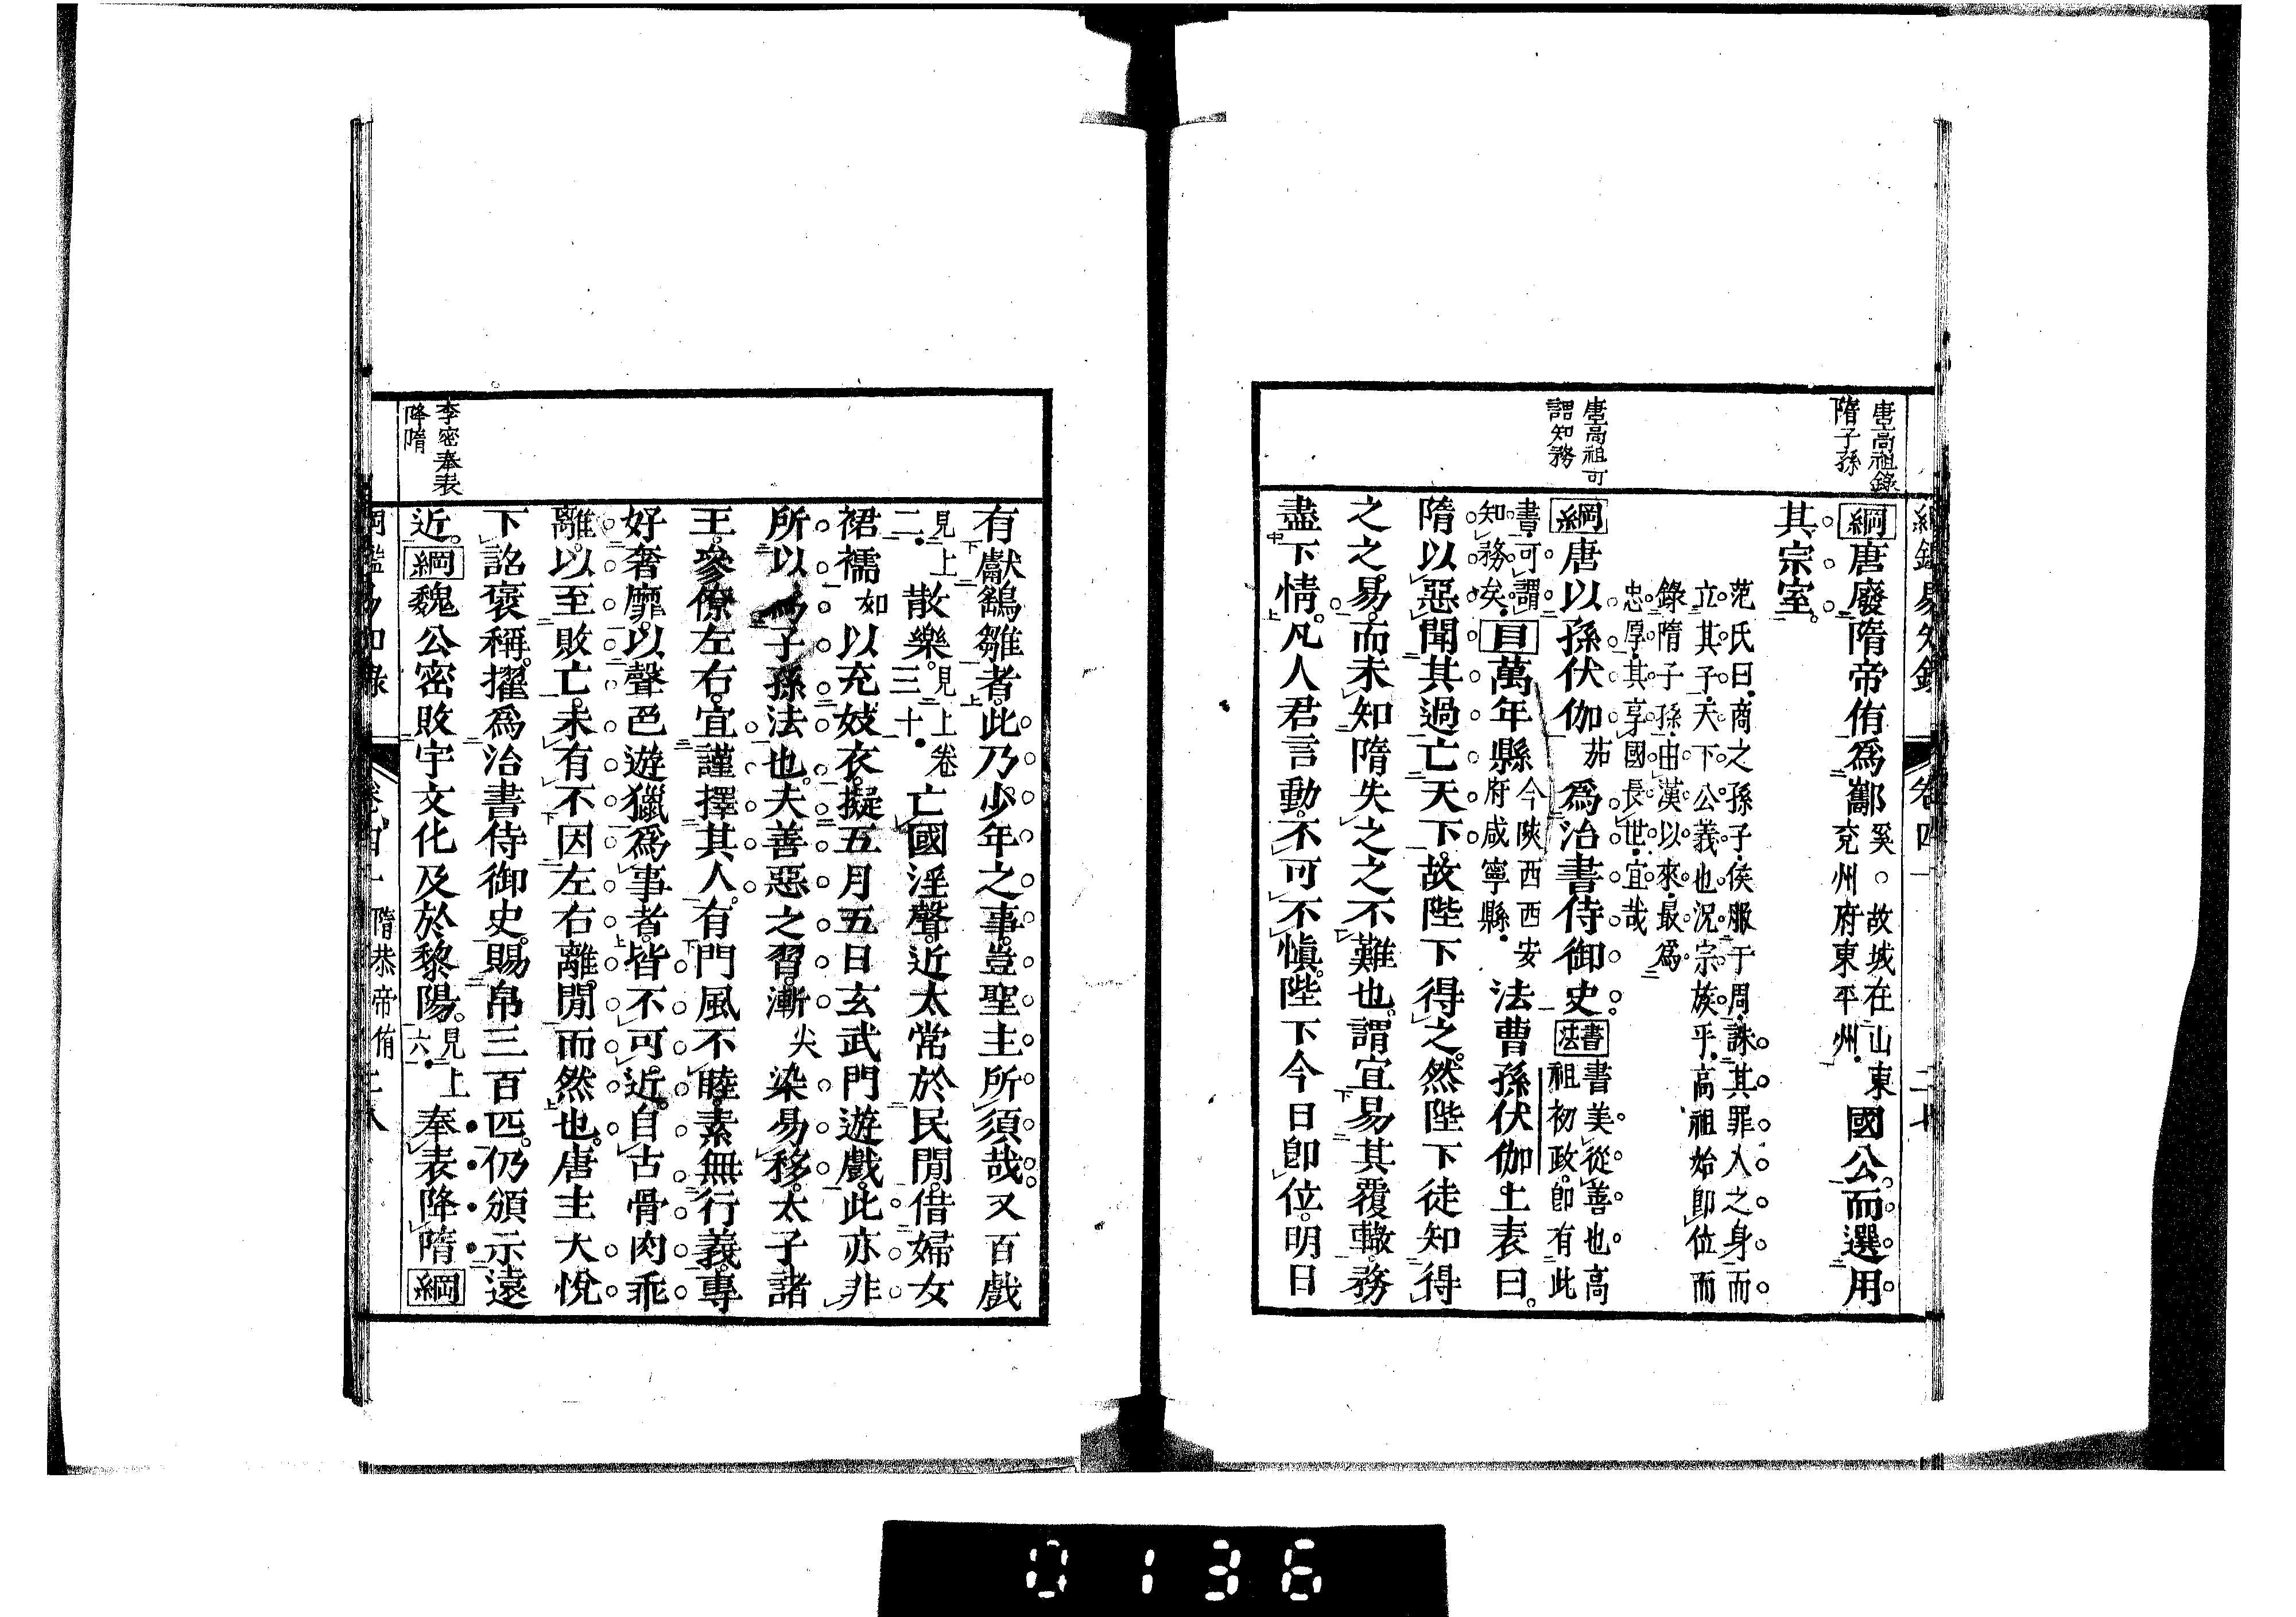 唐高祖錄
隋子孫
綱唐廢隋帝侑爲酅奚○故城在山東兖州府東平州國公而選用
其宗室
范氏曰商之孫子侯服于周誅其罪人之身而
立其子天下公義也況宗族乎高祖始卽位而
錄隋子孫由漢以來最爲
忠厚其享國長世宜哉
唐高祖可
謂知務
綱唐以孫伏伽茄爲治書侍御史書法書美從善也高祖初政卽有此
書可謂知務矣目萬年縣今陝西西安府咸寧縣法曹孫伏伽上表曰
隋以惡聞其過亡天下故陛下得之然陛下徒知得
之之易而未知隋失之之不難也謂宜易其覆轍務
盡下情凡人君言動不可不愼陛下今日卽位明日
有獻鷂雛者此乃少年之事豈聖主所須哉又百戲
見上二散樂見上卷三十亡國淫聲近太常於民閒借婦女
裙襦如以充妓衣擬五月五日玄武門遊戲此亦非
所以爲子孫法也夫善惡之習漸尖染易移太子諸
王參僚左右宜謹擇其人有門風不睦素無行義專
好奢靡以聲色遊獵爲事者皆不可近自古骨肉乖
離以至敗亡未有不因左右離閒而然也唐主大悅
下詔褒稱擢爲治書侍御史賜帛三百匹仍頒示遠
李密奉表
降隋
近綱魏公密敗宇文化及於黎陽見上六奉表降隋綱
隋恭帝侑
0136